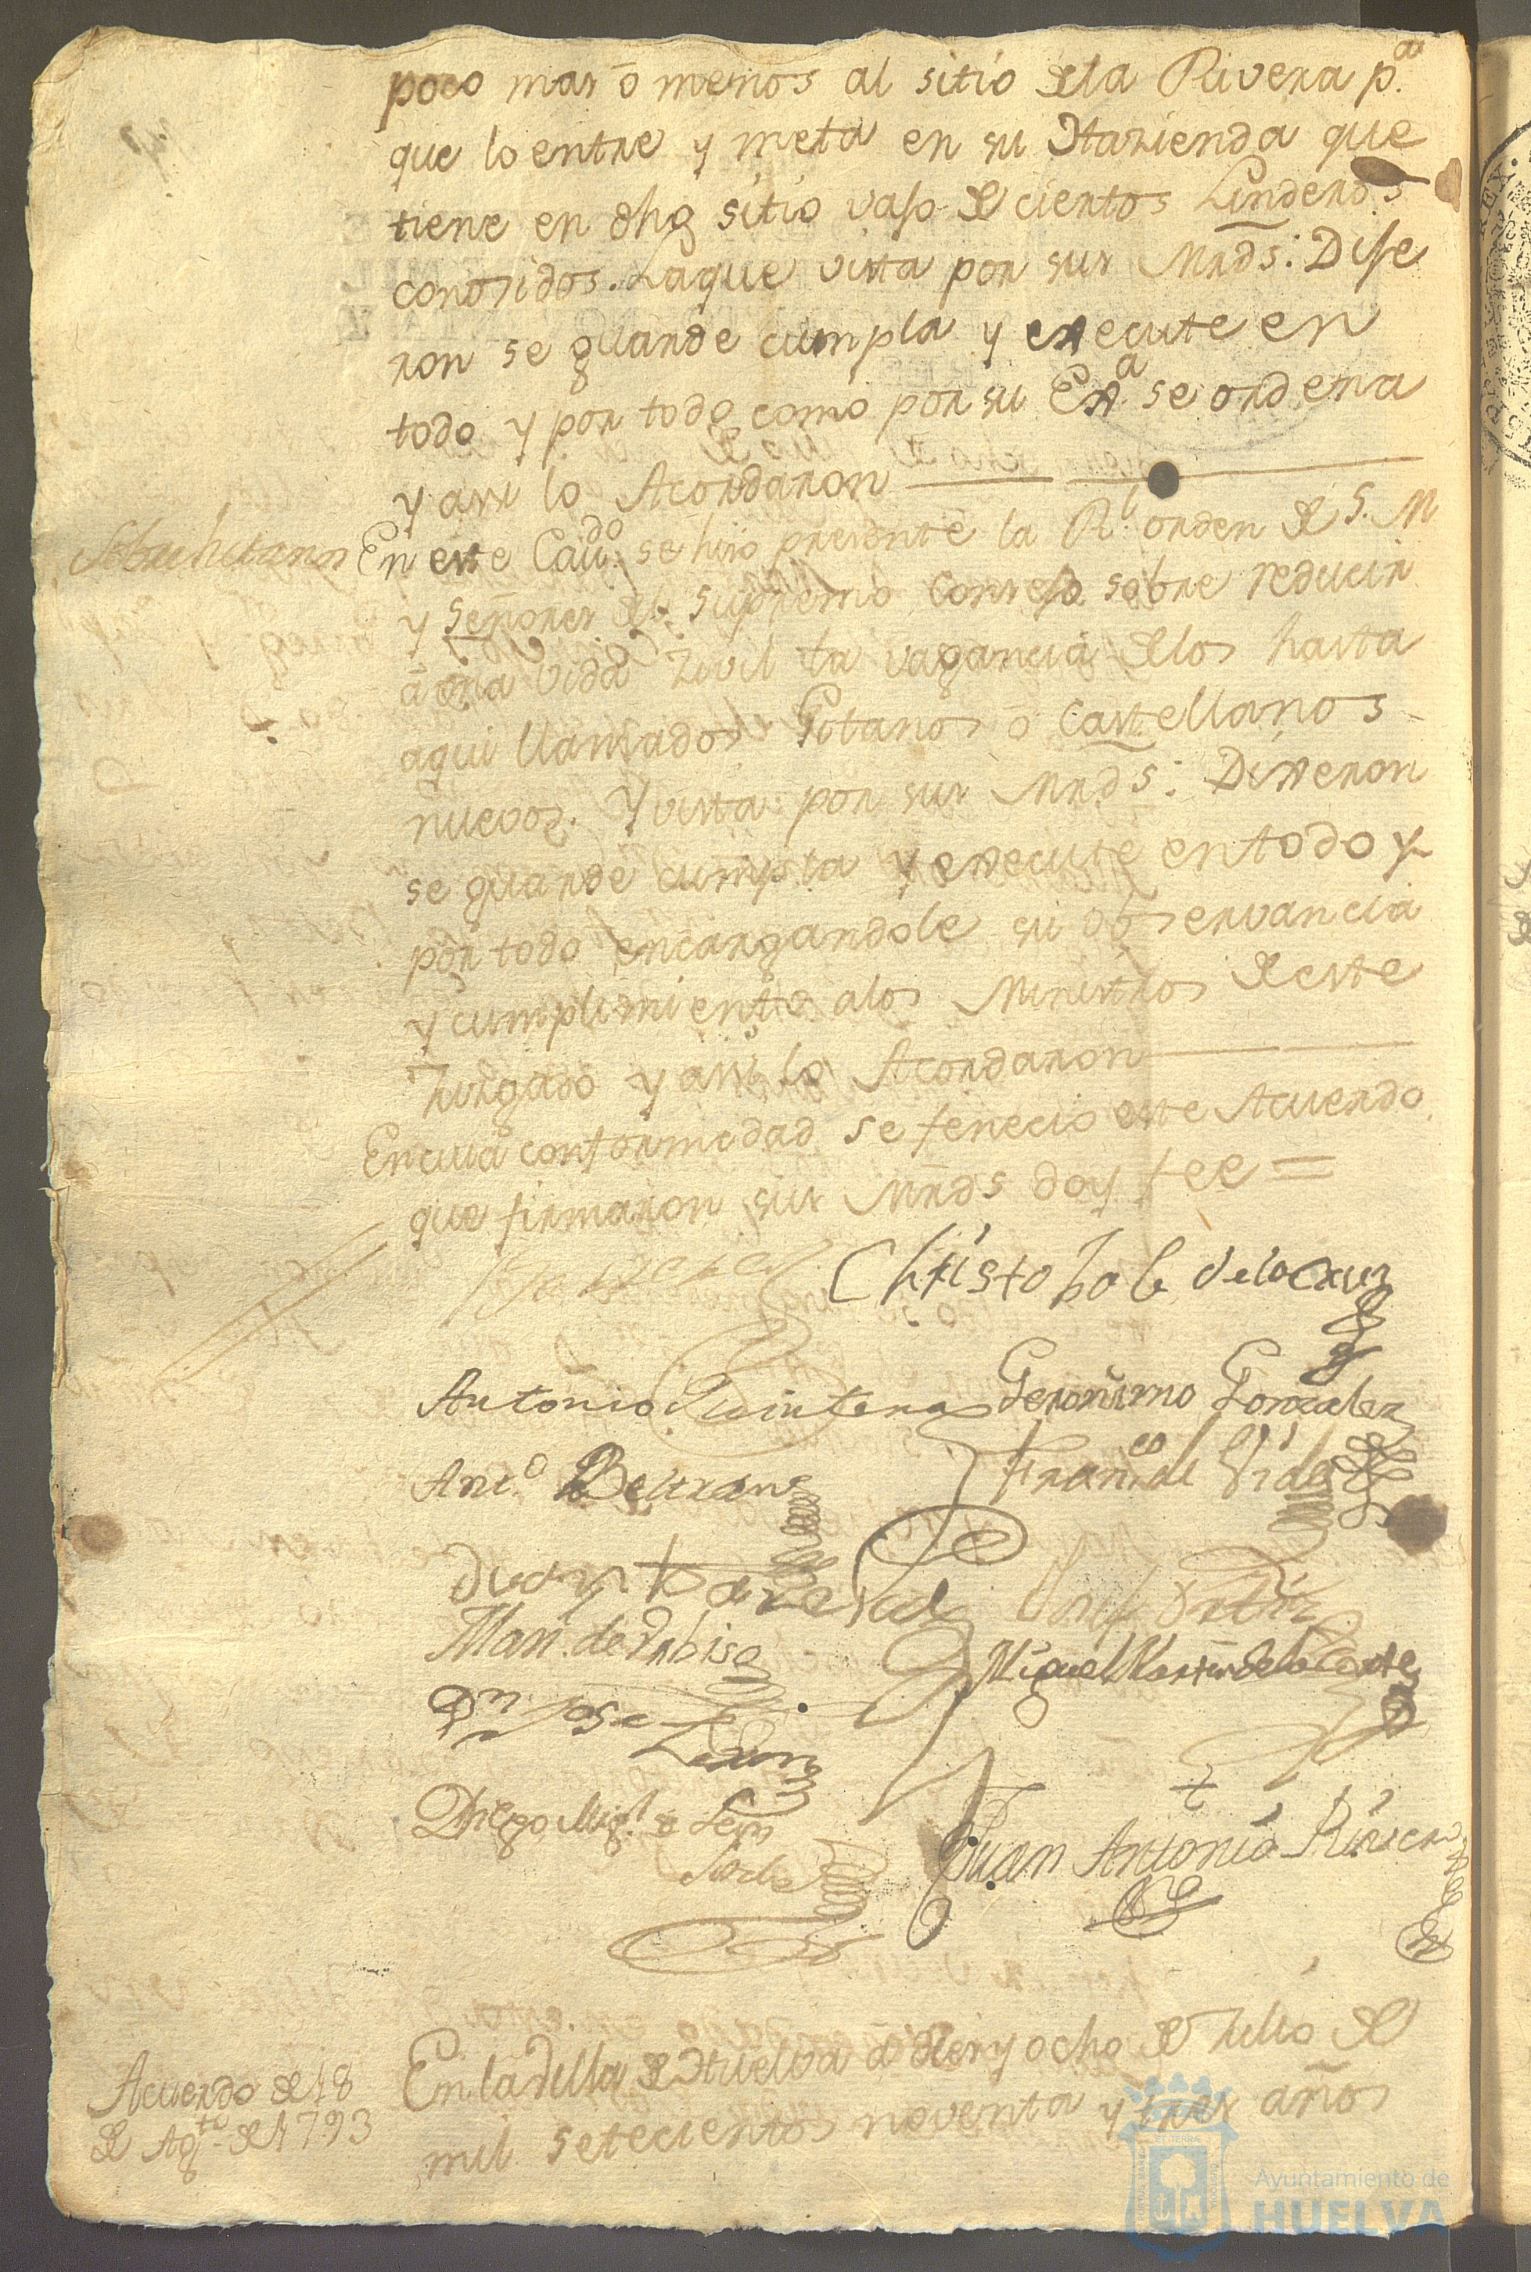 poco mas ô menos al sitio dela Rivera p.ª
que lo entre y meta en su Hazienda que
tiene en dho sitio vajo de ciertos Linderos
conozidos. La que vista por sus Mrds: Dije
ron se guarde cumpla y execute en
todo y por todo como por su Exª se ordena
y assi lo Acordaron
Sobre hitanos
En este Cavdo. se hizo presente la Rl. orden de S. M
y Señores del Supremo Consejo sobre reducir
â una vida Zivil la vagancia delos hasta
aqui llamados Gitanos ô Castellanos
nuevos. Y vista por sus Mrds: Dixeron
se guarde cumpla y execute en todo y
por todo encargandole su observancia
y cumplimiento alos Ministros de este
Juzgado y assi lo Acordaron
En cuia conformedad se fenecio este Acuerdo
que firmaron sus Mrds doy fee =
Christobal de la Cruz
Antonio Quintero Geronimo Gonzalez
Anto. Beltran Franco. de Vides
Josef Ortiz
Man. de
Miguel Martin de la Corte
Dn Jose Leon
Diego Migl. de Leon
Sorla
Juan Antonio Rivera
En la Villa de Huelva a diez y ocho de Julio de
mil setecientos noventa y tres años
Acuerdo de 18
de Agto. de 1793
Ayuntamiento de
HUELVA